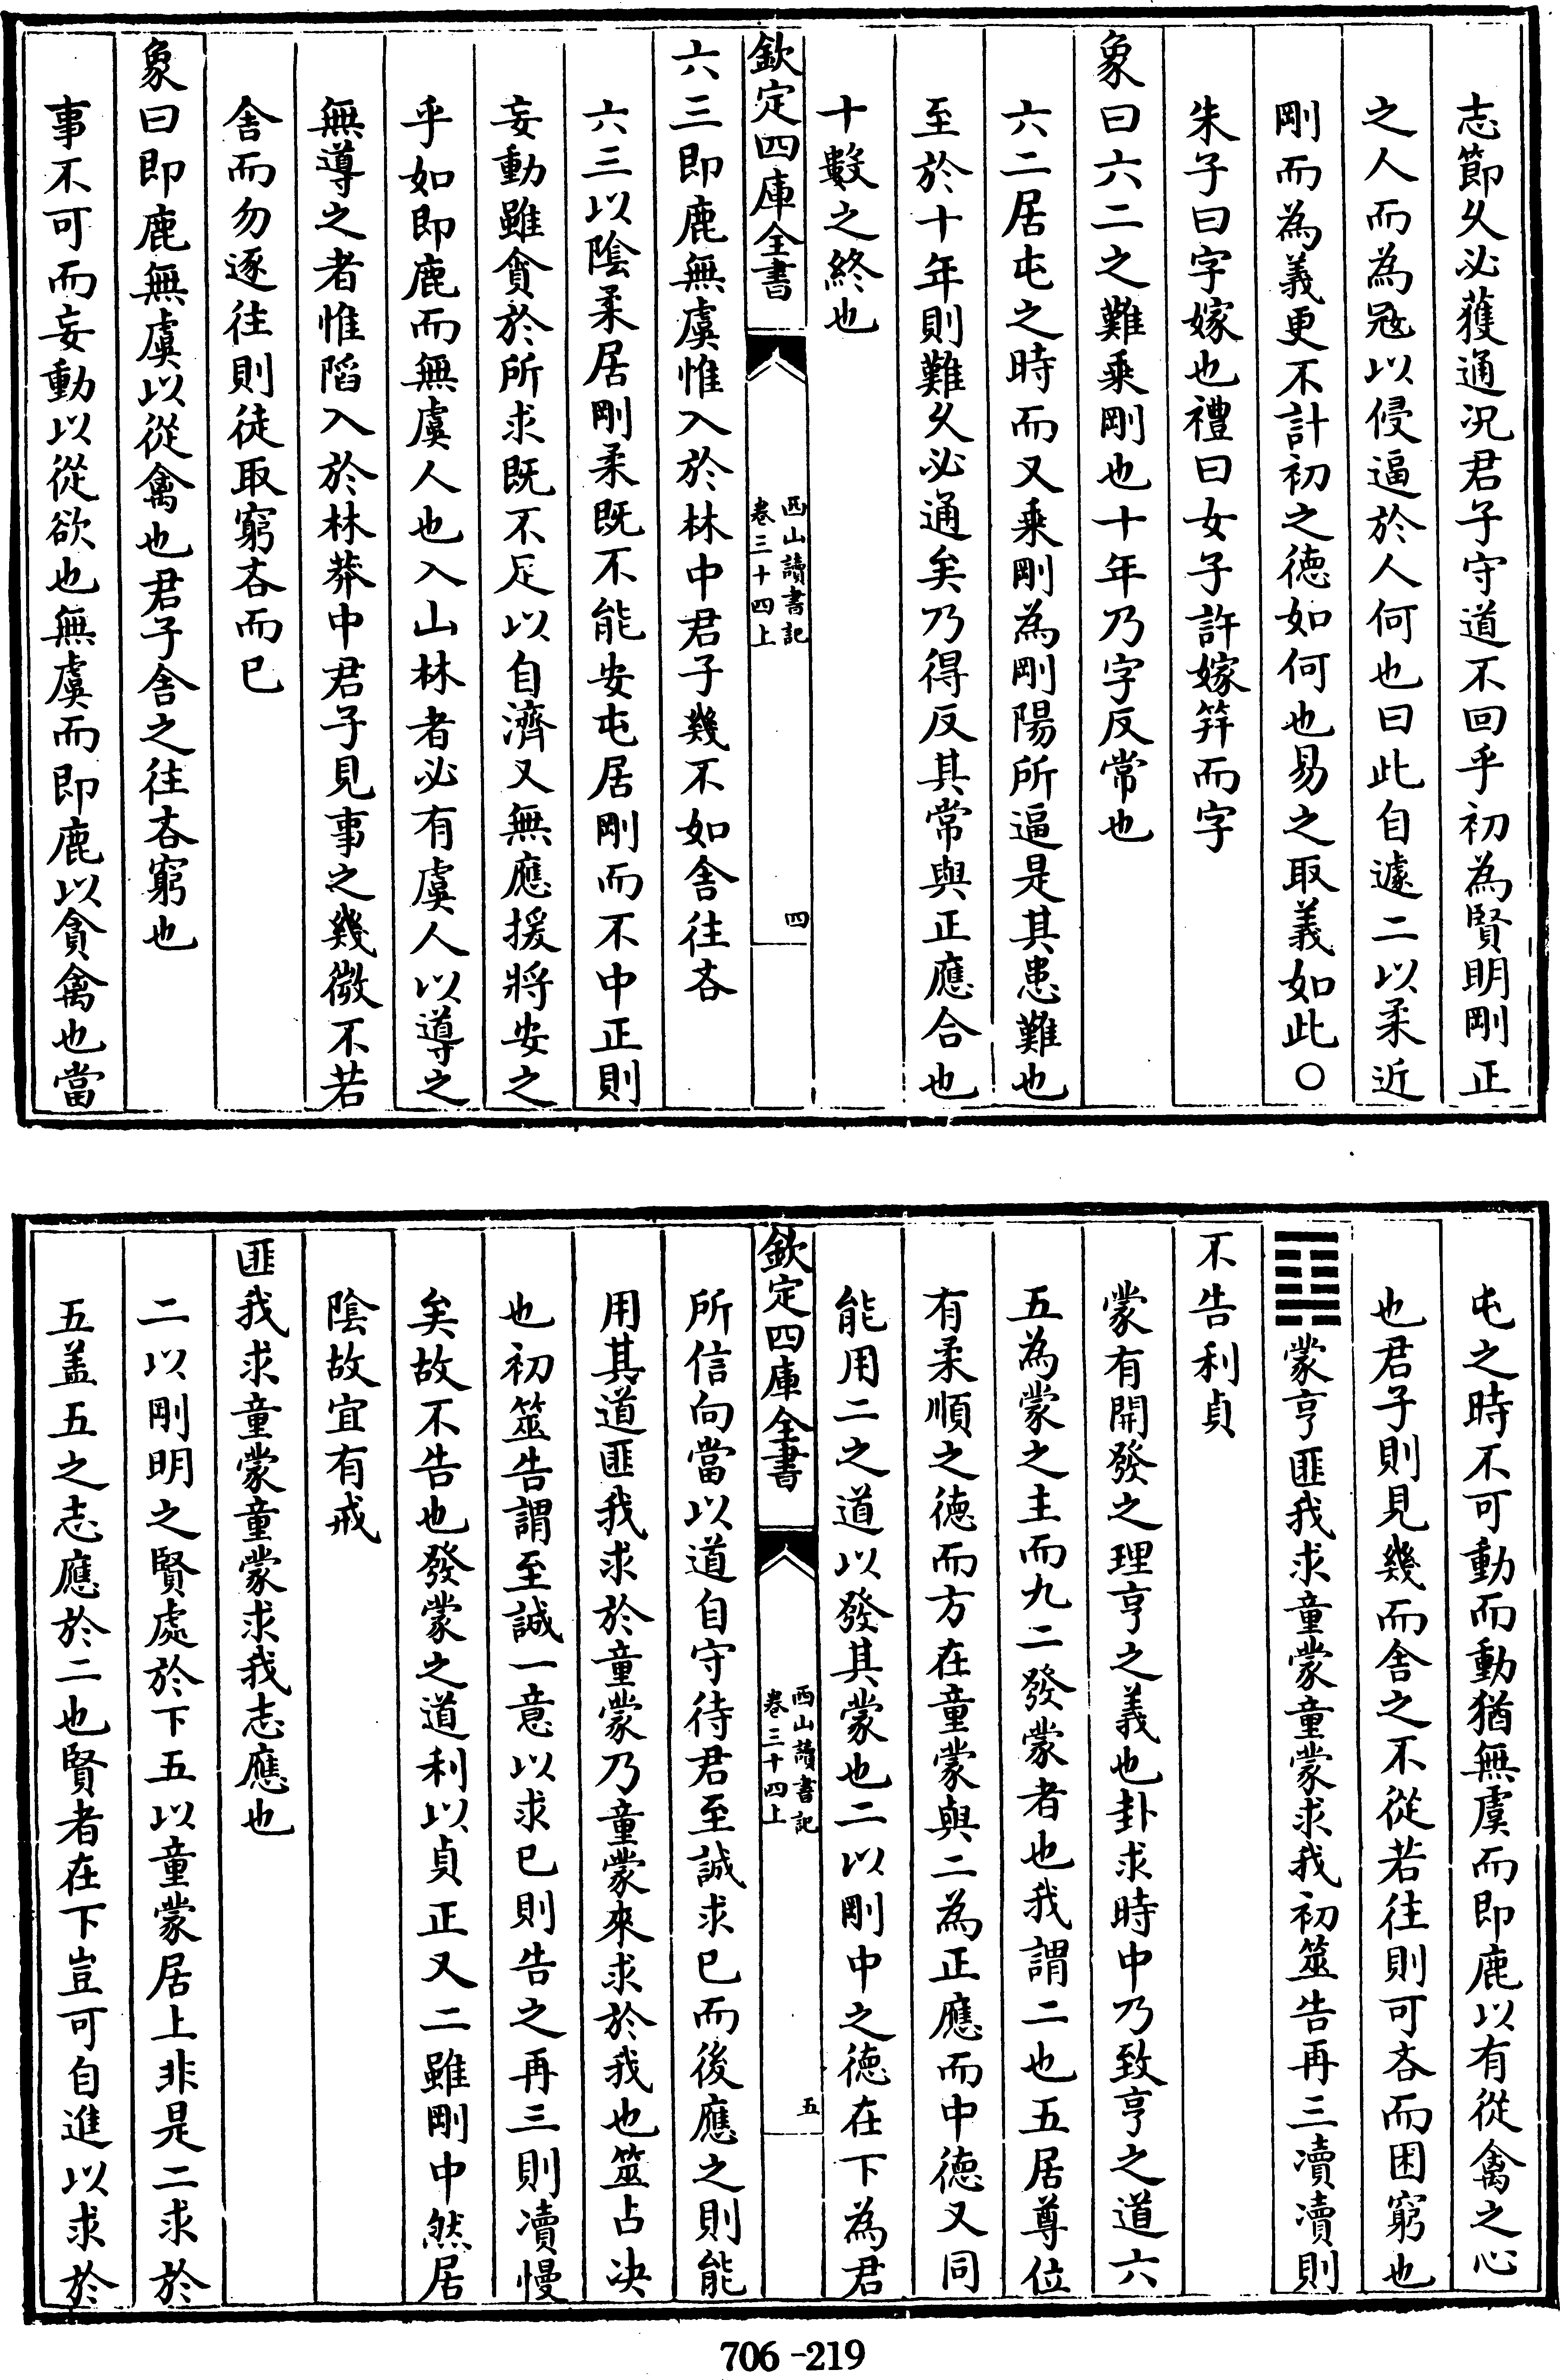 志節乆必獲通况君子守道不回乎初為賢明剛正
之人而為冦以侵逼於人何也曰此自遽二以柔近
剛而為義更不計初之徳如何也易之取義如此○
朱子曰字嫁也禮曰女子許嫁笄而字
象曰六二之難乘剛也十年乃字反常也
六二居屯之時而又乘剛為剛陽所逼是其患難也
至於十年則難乆必通矣乃得反其常與正應合也
十數之終也
欽定四庫全書
西山讀書記
卷三十四上
四
六三即鹿無虞惟入於林中君子幾不如舍往吝
六三以陰柔居剛柔既不能安屯居剛而不中正則
妄動雖貪於所求既不足以自濟又無應援將安之
乎如即鹿而無虞人也入山林者必有虞人以導之
無導之者惟陷入於林莽中君子見事之幾微不若
舍而勿逐往則徒取窮吝而已
象曰即鹿無虞以從禽也君子舍之往吝窮也
事不可而妄動以從欲也無虞而即鹿以貪禽也當
屯之時不可動而動猶無虞而即鹿以有從禽之心
也君子則見幾而舍之不從若往則可吝而困窮也
䷃蒙亨匪我求童蒙童蒙求我初筮告再三凟凟則
不告利貞
蒙有開發之理亨之義也卦求時中乃致亨之道六
五為蒙之主而九二發蒙者也我謂二也五居尊位
有柔順之徳而方在童蒙與二為正應而中徳又同
能用二之道以發其蒙也二以剛中之徳在下為君
欽定四庫全書
西山讀書記
卷三十四上
五
所信向當以道自守待君至誠求已而後應之則能
用其道匪我求於童蒙乃童蒙來求於我也筮占决
也初筮告謂至誠一意以求已則告之再三則凟慢
矣故不告也發蒙之道利以貞正又二雖剛中然居
陰故宜有戒
匪我求童蒙童蒙求我志應也
二以剛明之賢處於下五以童蒙居上非是二求於
五盖五之志應於二也賢者在下豈可自進以求於
706-219